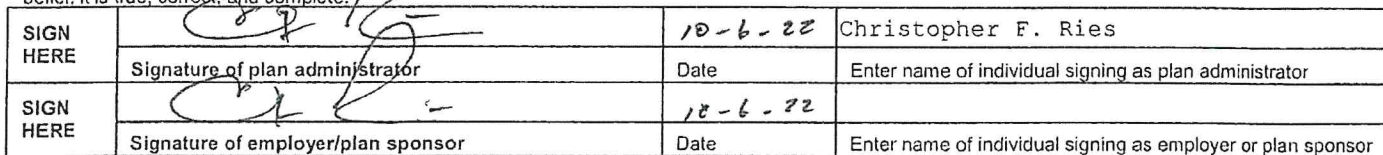 belief, it is true, correct, and complete.
SIGN HERE 10-6-22 Christopher F. Ries
Signature of plan administrator Date Enter name of individual signing as plan administrator
SIGN HERE 10-6-22
Signature of employer/plan sponsor Date Enter name of individual signing as employer or plan sponsor